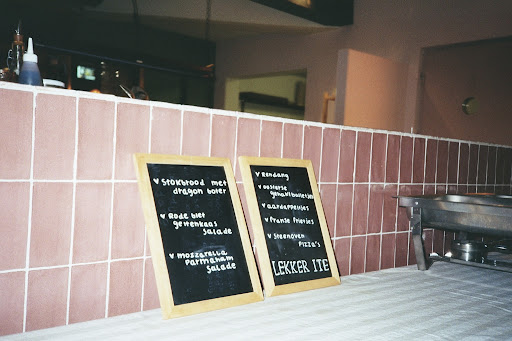 ♥ Stokbrood met
dragon boter
♥ Rode biet
geitenkaas
Salade
♥ mozzarella
Parmaham
Salade
♥ Rendang
♥ oosterse
gehaktballetjes
♥ aardappeltjes
♥ franse frietjes
♥ Steenoven
Pizza's
LEKKER ITE